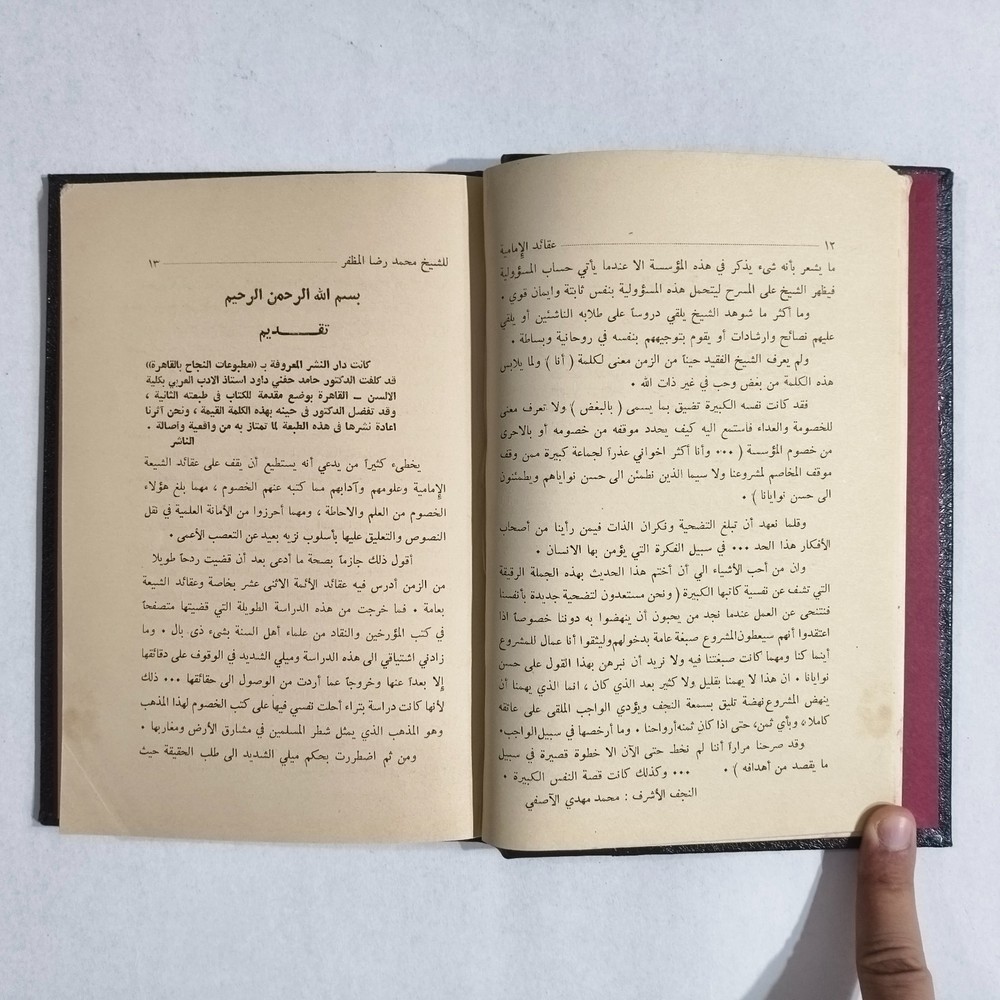 ١٢ عقائد الإمامية
ما يشعر بأنه شىء يذكر في هذه المؤسسة الا عندما يأتي حساب المسؤولية
فيظهر الشيخ على المسرح ليتحمل هذه المسؤولية بنفس ثابتة وايمان قوي .
وما أكثر ما شوهد الشيخ يلقي دروساً على طلابه الناشئين أو يلقي
عليهم نصائح وارشادات أو يقوم بتوجيههم بنفسه في روحانية وبساطة .
ولم يعرف الشيخ الفقيد حيناً من الزمن معنى لكلمة ( أنا ) ولما يلابس
هذه الكلمة من بغض وحب في غير ذات الله .
فقد كانت نفسه الكبيرة تضيق بما يسمى ( بالبغض ) ولا تعرف معنى
للخصومة والعداء فاستمع اليه كيف يحدد موقفه من خصومه أو بالاحرى
من خصوم المؤسسة ( ... وأنا أكثر اخواني عذراً لجماعة كبيرة ممن وقف
موقف المخاصم لمشروعنا ولا سيما الذين نطمئن الى حسن نواياهم ويطمئنون
الى حسن نوايانا ) .
وقلما نعهد أن تبلغ التضحية ونكران الذات فيمن رأينا من أصحاب
الأفكار هذا الحد ... في سبيل الفكرة التي يؤمن بها الانسان .
وان من أحب الأشياء الي أن أختم هذا الحديث بهذه الجملة الرقيقة
التي تشف عن نفسية كاتبها الكبيرة ( ونحن مستعدون لتضحية جديدة بأنفسنا
فنتنحى عن العمل عندما نجد من يحبون أن ينهضوا به دوننا خصوصاً اذا
اعتقدوا أنهم سيعطون المشروع صبغة عامة بدخولهم وليثقوا أنا عمال للمشروع
أينما كنا ومهما كانت صبغتنا فيه ولا نريد أن نبرهن بهذا القول على حسن
نوايانا . ان هذا لا يهمنا بقليل ولا كثير بعد الذي كان ، انما الذي يهمنا أن
ينهض المشروع نهضة تليق بسمعة النجف ويؤدي الواجب الملقى على عاتقه
كاملاً، وبأي ثمن، حتى اذا كان ثمنه أرواحنا . وما أرخصها في سبيل الواجب.
وقد صرحنا مراراً أننا لم نخط حتى الآن الا خطوة قصيرة في سبيل
ما يقصد من أهدافه ) . ... وكذلك كانت قصة النفس الكبيرة .
النجف الأشرف : محمد مهدي الآصفي
للشيخ محمد رضا المظفر ١٣
بسم الله الرحمن الرحيم
تقـــديم
كانت دار النشر المعروفة بـ ((مطبوعات النجاح بالقاهرة))
قد كلفت الدكتور حامد حفني داود استاذ الادب العربي بكلية
الالسن ــ القاهرة بوضع مقدمة للكتاب في طبعته الثانية ،
وقد تفضل الدكتور في حينه بهذه الكلمة القيمة ، ونحن آثرنا
اعادة نشرها في هذه الطبعة لما تمتاز به من واقعية وأصالة .
الناشر
يخطىء كثيراً من يدعي أنه يستطيع أن يقف على عقائد الشيعة
الإمامية وعلومهم وآدابهم مما كتبه عنهم الخصوم ، مهما بلغ هؤلاء
الخصوم من العلم والاحاطة ، ومهما أحرزوا من الأمانة العلمية في نقل
النصوص والتعليق عليها بأسلوب نزيه بعيد عن التعصب الأعمى .
أقول ذلك جازماً بصحة ما أدعى بعد أن قضيت ردحاً طويلا
من الزمن أدرس فيه عقائد الأئمة الاثنى عشر بخاصة وعقائد الشيعة
بعامة . فما خرجت من هذه الدراسة الطويلة التي قضيتها متصفحاً
في كتب المؤرخين والنقاد من علماء أهل السنة بشىء ذى بال . وما
زادني اشتياقي الى هذه الدراسة وميلي الشديد في الوقوف على دقائقها
إلا بعداً عنها وخروجاً عما أردت من الوصول الى حقائقها ... ذلك
لأنها كانت دراسة بتراء أحلت نفسي فيها على كتب الخصوم لهذا المذهب
وهو المذهب الذي يمثل شطر المسلمين في مشارق الأرض ومغاربها .
ومن ثم اضطررت بحكم ميلي الشديد الى طلب الحقيقة حيث